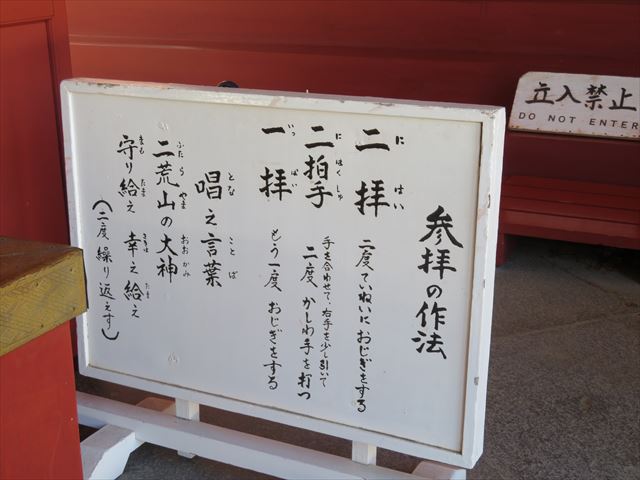 参拝の作法
二拝 二度ていねいにおじぎをする
にはい
二拍手 手を合わせて、右手を少し引いて
にはくしゅ
二度 かしわ手を打つ
一拝 もう一度 おじぎをする
いっぱい
唱え言葉
となことば
二荒山の大神
ふたらやまおおかみ
守り給え 幸え給え
まもたまさきはたま
(二度繰り返えす)
立入禁止
DO NOT ENTER